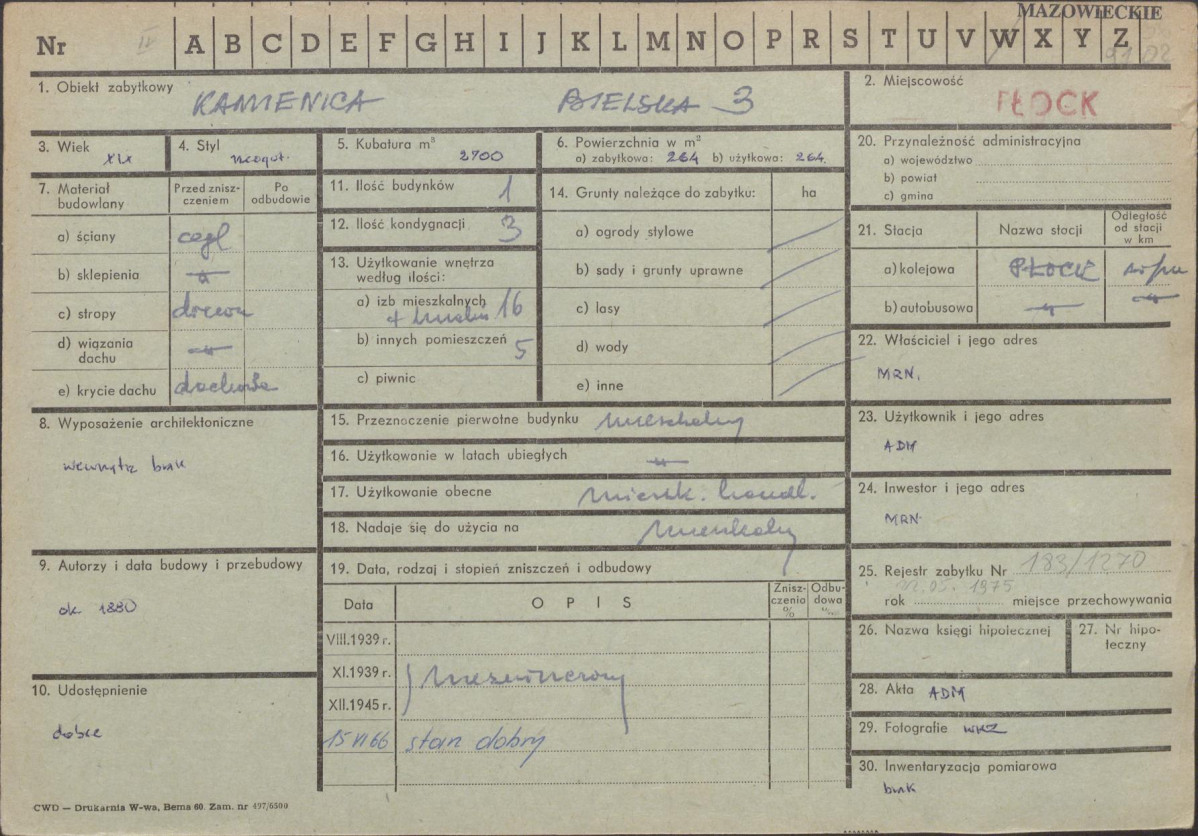 MAZOWIECKIE
Nr IV A B C D E F G H I J K L M N O P R S T U V W X Y Z
1. Obiekt zabytkowy KAMIENICA BIELSKA 3
2. Miejscowość PŁOCK
3. Wiek XIX
4. Styl neogot.
5. Kubatura m³ 2700
6. Powierzchnia w m²
a) zabytkowa: 264 b) użytkowa: 264
7. Materiał budowlany
Przed zniszczeniem
Po odbudowie
a) ściany cegł
b) sklepienia
c) stropy drewn
d) wiązania dachu
e) krycie dachu dachówka
8. Wyposażenie architektoniczne
wewnątrz brak
9. Autorzy i data budowy i przebudowy
ok 1880
10. Udostępnienie
dobre
11. Ilość budynków 1
12. Ilość kondygnacji 3
13. Użytkowanie wnętrza według ilości:
a) izb mieszkalnych 16
b) innych pomieszczeń 5
c) piwnic
14. Grunty należące do zabytku: ha
a) ogrody stylowe
b) sady i grunty uprawne
c) lasy
d) wody
e) inne
15. Przeznoczenie pierwotne budynku mieszkalny
16. Użytkowanie w latach ubiegłych
17. Użytkowanie obecne mieszk. handl.
18. Nadaje się do użycia na mieszkalny
19. Data, rodzaj i stopień zniszczeń i odbudowy
Data OPIS Zniszczenia % Odbudowa %
VIII.1939 r.
XI.1939 r.
XII.1945 r.
15 VI 66 stan dobry
20. Przynależność administracyjna
a) województwo
b) powiat
c) gmina
21. Stacja Nazwa stacji Odległość od stacji w km
a) kolejowa PŁOCK
b) autobusowa
22. Właściciel i jego adres
MRN.
23. Użytkownik i jego adres
ADM
24. Inwestor i jego adres
MRN
25. Rejestr zabytku Nr 183/1270
rok 1975 miejsce przechowywania
26. Nazwa księgi hipotecznej
27. Nr hipoteczny
28. Akta ADM
29. Fotografie WKZ
30. Inwentaryzacja pomiarowa
brak
CWD — Drukarnia W-wa, Bema 60. Zam. nr 497/6500